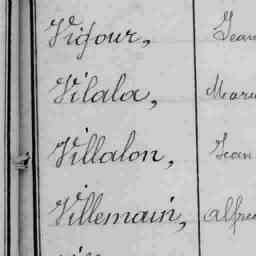 Vigour, Jean
Vilala, Mari
Villalon, Jean
Villemain, Alfre